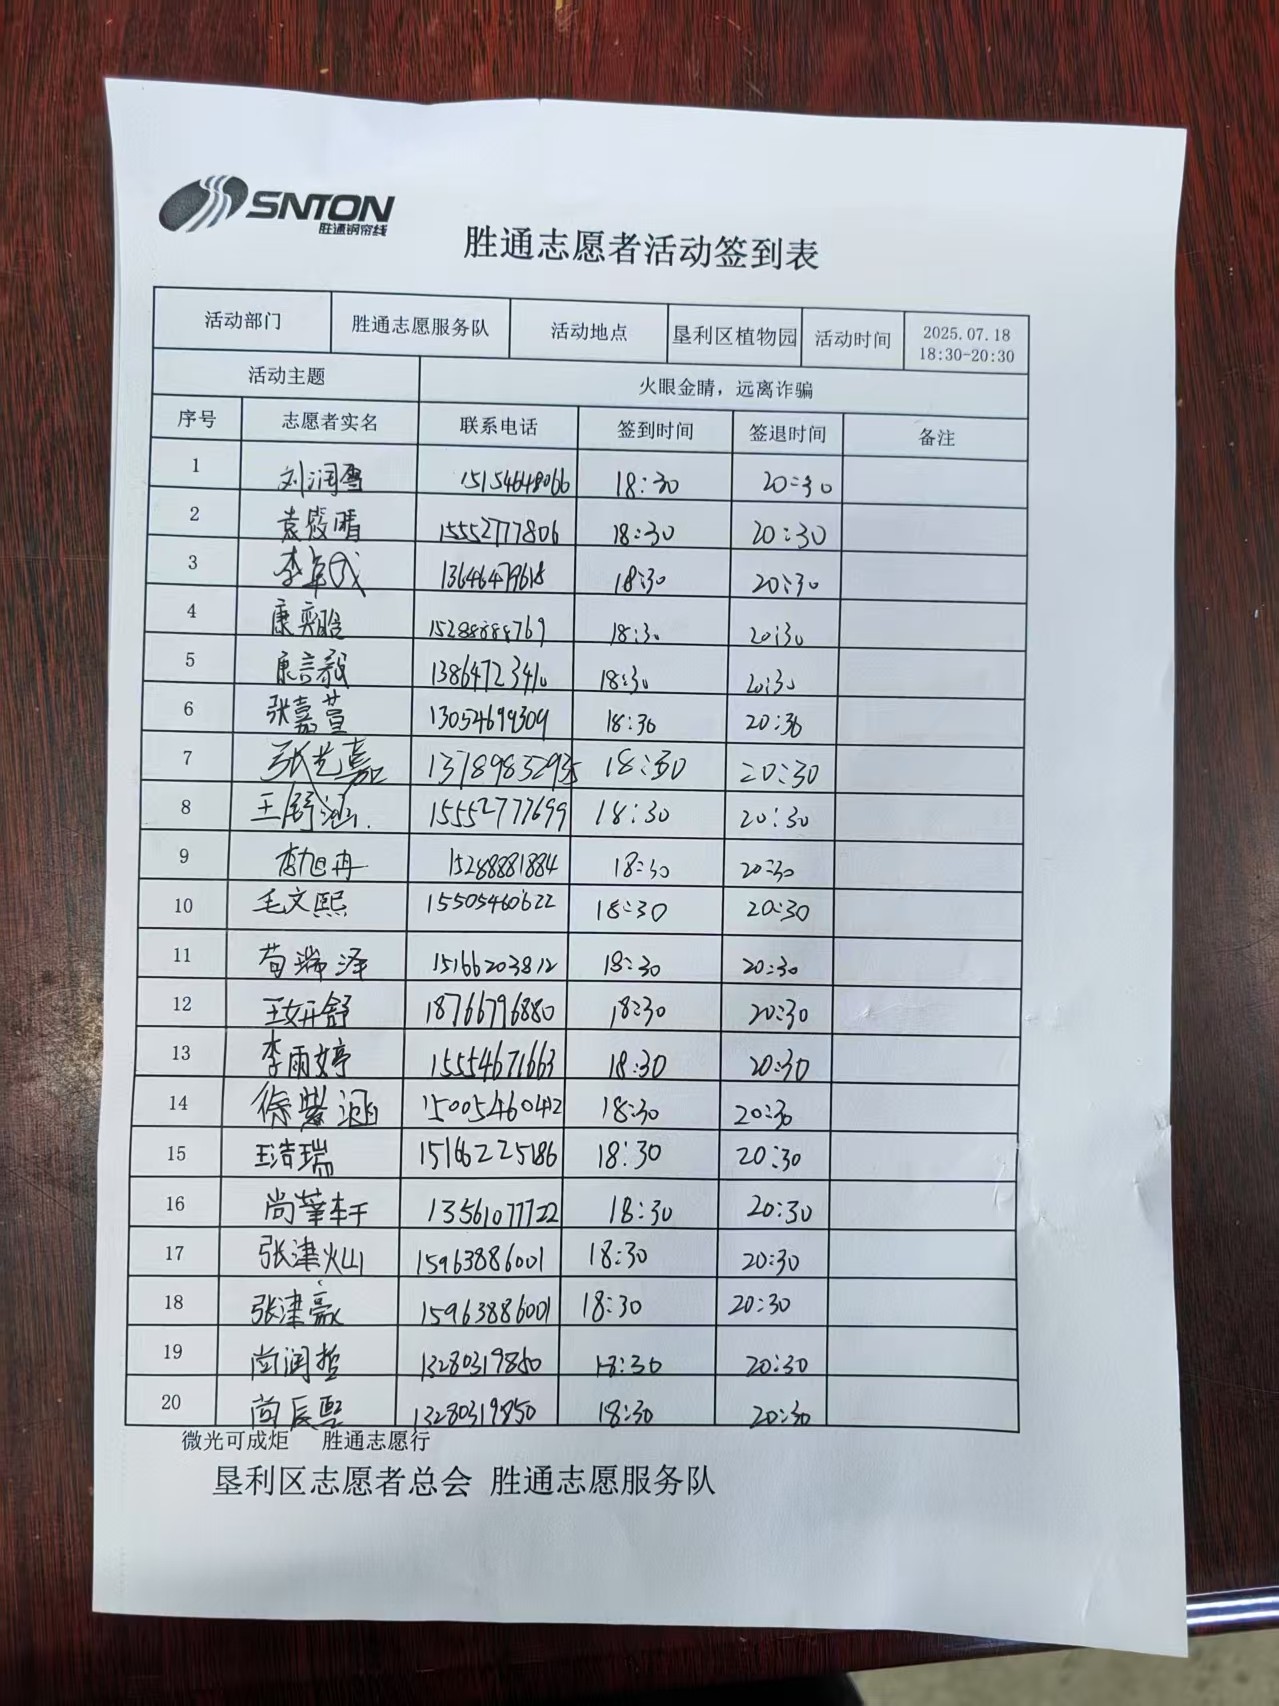 SNTON
胜通钢帘线
胜通志愿者活动签到表
活动部门 胜通志愿服务队 活动地点 垦利区植物园 活动时间 2025.07.18 18:30-20:30
活动主题 火眼金睛，远离诈骗
序号 志愿者实名 联系电话 签到时间 签退时间 备注
1 刘润雪 15154648066 18:30 20:30
2 袁晴 15552777806 18:30 20:30
3 李 13646479618 18:30 20:30
4 康奕晗 15288888769 18:30 20:30
5 康言毅 13864723410 18:30 20:30
6 张嘉萱 13054699309 18:30 20:30
7 张艺嘉 18:30 20:30
8 王舒涵 15552777699 18:30 20:30
9 李旭冉 15288881884 18:30 20:30
10 毛文熙 15505460622 18:30 20:30
11 苟瑞泽 15166203812 18:30 20:30
12 王妍舒 18766796880 18:30 20:30
13 李雨婷 15554671663 18:30 20:30
14 徐紫涵 15005460412 18:30 20:30
15 王浩瑞 15166225186 18:30 20:30
16 尚华轩 13561077722 18:30 20:30
17 张津灿 15963886001 18:30 20:30
18 张津豪 15963886001 18:30 20:30
19 尚润哲 13280319850 18:30 20:30
20 尚辰熙 13280319850 18:30 20:30
微光可成炬 胜通志愿行
垦利区志愿者总会 胜通志愿服务队